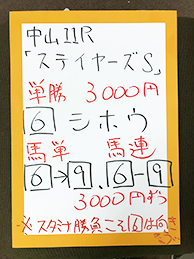 中山11R
「ステイヤーズS」
単勝 3000円
6 シホウ
馬単 馬連
6→9、6-9
3000円ずつ
※スタミナ勝負こそ6は向き